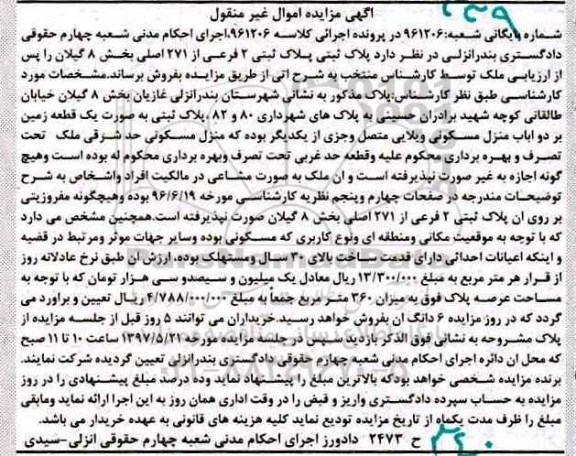 ۲۳۹
آگهی مزایده اموال غیر منقول
شماره بایگانی شعبه:۹۶۱۲۰۶ در پرونده اجرائی کلاسه ۹۶۱۲۰۶،اجرای احکام مدنی شعبه چهارم حقوقی
دادگستری بندرانزلی در نظر دارد پلاک ثبتی پلاک ثبتی ۲ فرعی از ۲۷۱ اصلی بخش ۸ گیلان را پس
از ارزیابی ملک توسط کارشناس منتخب به شرح اتی از طریق مزایده بفروش برساند.مشخصات مورد
کارشناسی طبق نظر کارشناس:پلاک مذکور به نشانی شهرستان بندرانزلی غازیان بخش ۸ گیلان خیابان
طالقانی کوچه شهید برادران حسینی به پلاک های شهرداری ۸۰ و ۸۲ ،پلاک ثبتی به صورت یک قطعه زمین
بر دو اباب منزل مسکونی ویلایی متصل وجزی از یکدیگر بوده که منزل مسکونی حد شرقی ملک تحت
تصرف و بهره برداری محکوم علیه وقطعه حد غربی تحت تصرف وبهره برداری محکوم له بوده است وهیچ
گونه اجازه به غیر صورت نپذیرفته است و ان ملک به صورت مشاعی در مالکیت افراد واشخاص به شرح
توضیحات مندرجه در صفحات چهارم وپنجم نظریه کارشناسی مورخه ۹۶/۶/۱۹ بوده وهیچگونه مفروزیتی
بر روی ان پلاک ثبتی ۲ فرعی از ۲۷۱ اصلی بخش ۸ گیلان صورت نپذیرفته است.همچنین مشخص می دارد
که با توجه به موقعیت مکانی ومنطقه ای ونوع کاربری که مسکونی بوده وسایر جهات موثر ومرتبط در قضیه
و اینکه اعیانات احداثی دارای قدمت ساخت بالای ۳۰ سال ومستهلک بوده، ارزش ان طبق نرخ عادلانه روز
از قرار هر متر مربع به مبلغ ۱۳/۳۰۰/۰۰۰ ریال معادل یک میلیون و سیصدو سی هزار تومان که با توجه به
مساحت عرصه پلاک فوق به میزان ۳۶۰ متر مربع جمعا به مبلغ ۴/۷۸۸/۰۰۰/۰۰۰ ریال تعیین و برآورد می
گردد که در روز مزایده ۶ دانگ ان بفروش خواهد رسید.خریداران می توانند ۵ روز قبل از جلسه مزایده از
پلاک مشروحه به نشانی فوق الذکر بازدید سپس در جلسه مزایده مورخه ۱۳۹۷/۵/۲۱ ساعت ۱۰ تا ۱۱ صبح
که محل ان دائره اجرای احکام مدنی شعبه چهارم حقوقی دادگستری بندرانزلی تعیین گردیده شرکت نمایند.
برنده مزایده شخصی خواهد بودکه بالاترین مبلغ را پیشنهاد نماید وده درصد مبلغ پیشنهادی را در روز
مزایده به حساب سپرده دادگستری واریز و قبض را در وقت اداری همان روز به این اجرا ارائه نماید ومابقی
مبلغ را ظرف مدت یکماه از تاریخ مزایده تودیع نماید کلیه هزینه های قانونی به عهده خریدار می باشد.
ح ۲۴۷۳ دادورز اجرای احکام مدنی شعبه چهارم حقوقی انزلی-سیدی
۲۴۰